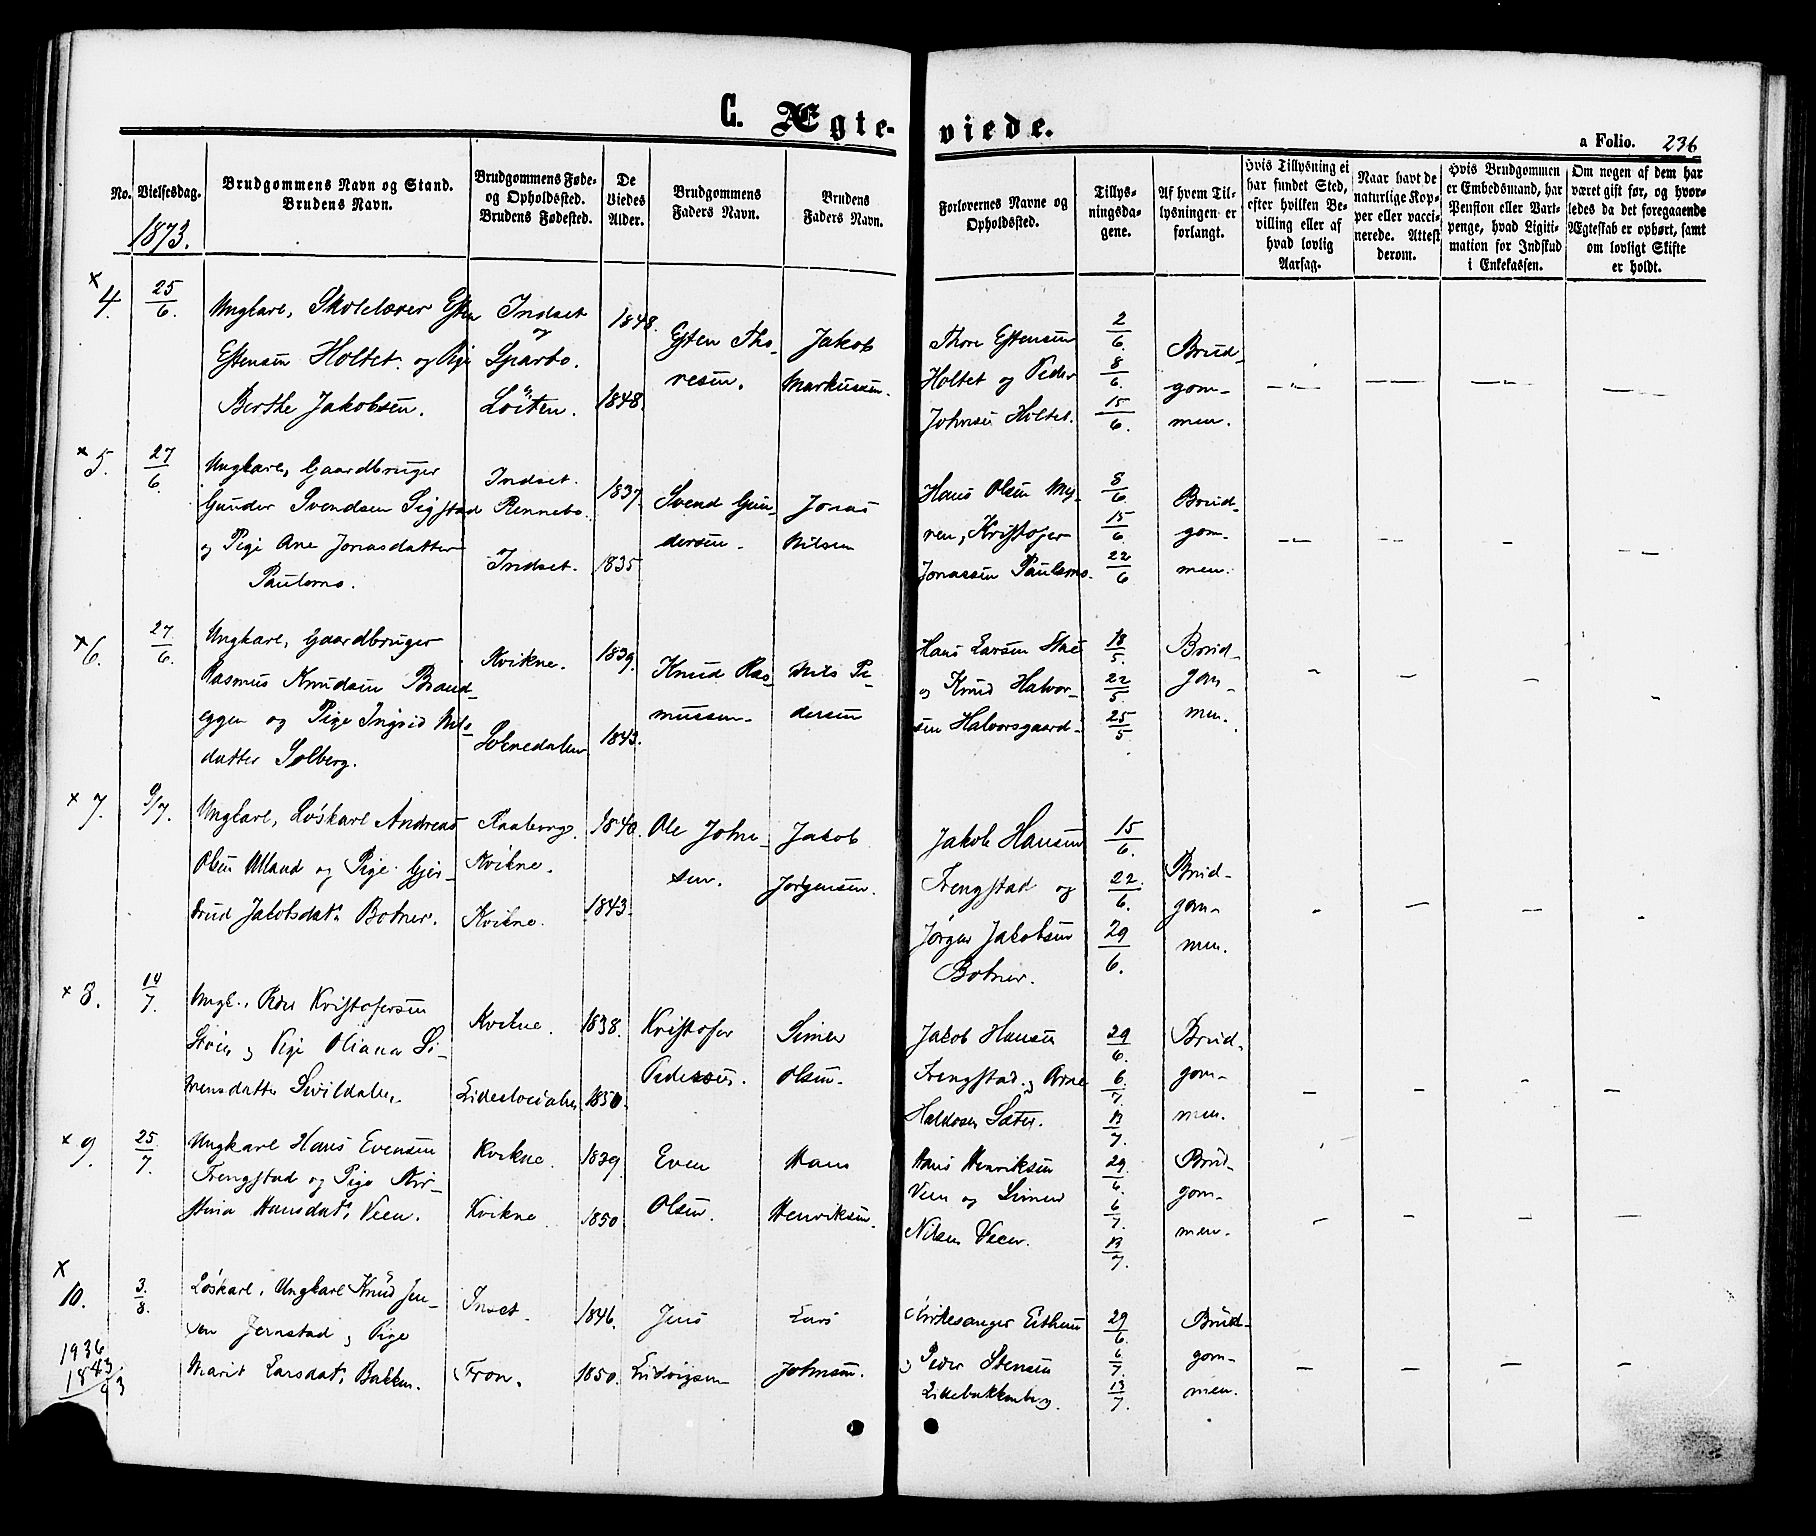 C. Ægte-viede.
a Folio. 236
No.
Vielsesdag.
Brudgommens Navn og Stand.
Brudens Navn.
Brudgommens Føde-
og Opholdssted.
Brudens Fødested.
De
Viedes
Alder.
Brudgommens
Faders Navn.
Brudens
Faders Navn.
Forlovernes Navne og
Opholdssted.
Tillys-
ningsda-
gene.
Af hvem Til-
lysningen er
forlangt.
Hvis Tillysning ei
har fundet Sted,
efter hvilken Be-
villing eller af
hvad lovlig
Aarsag.
Naar havt de
naturlige Kop-
per eller vacci-
nerede. Attest
derom.
Hvis Brudgommen
er Embedsmand, har
Pension eller Vart-
penge, hvad Ligiti-
mation for Indskud
i Enkekassen.
Om nogen af dem har
været gift før, og hvor-
ledes da det foregaaende
Ægteskab er ophørt, samt
om lovligt Skifte
er holdt.
1873.
x 4. 25/6.
Ungkarl, Skolelærer Esten
Estensen Holtet og Pige
Berthe Jakobsen.
Indset
og
Sparbo.
Löiten.
1848.
1848.
Esten Tho-
resen.
Jakob
Markussen.
Thore Estensen
Holtet og Peder
Johnsen Holtet.
2/6
8/6.
15/6.
Brud-
gom-
men.
x 5. 27/6.
Ungkarl, Gaardbruger
Gunder Svendsen Sigstad
og Pige Ane Jonasdatter
Paulsmo.
Indset.
Rennebo.
Indset.
1837.
1835
Svend Gun-
dersen.
Jonas
Nilsen
Hans Olsen My-
ren, Kristofer
Jonassen Paulsmo.
8/6
15/6.
22/6
Brud-
gom-
men.
x 6. 27/6.
Ungkarl, Gaardbruger
Rasmus Knudsen Brand-
eggen og Pige Ingrid Nils-
datter Solberg.
Kvikne.
Solnedalen
1839.
1843.
Knud Ras-
mussen.
Nils Pe-
dersen
Hans Larsen Stai
og Knud Halvor-
sen Halvorsgaard
18/5.
22/5.
25/5
Brud-
gom-
men.
x 7. 9/7.
Ungkarl, Løskarl Andreas
Olsen Utland og Pige Gjer-
trud Jakobsdat. Botner.
Kvikne.
Kvikne.
1840.
1843.
Ole John-
sen.
Jakob
Jørgensen.
Jakob Hansen
Frengstad og
Jørgen Jakobsen
Botner.
15/6.
22/6.
29/6.
Brud-
gom-
men.
x 8. 14/7.
Ungk. Peder Kristofersen
Støen og Pige Oliana Si-
mensdatter
Kvikne.
1838.
1850.
Kristofer
Pedersen.
Simen
Olsen.
Jakob Hansen
Frengstad og Arne
Haldosen Sæter.
29/6.
6/7.
13/7.
Brud-
gom-
men.
x 9. 25/7.
Ungkarl Hans Evensen
Frengstad og Pige Kir-
stina Hansdat. Veen.
Kvikne.
Kvikne
1839.
1850
Even
Olsen.
Hans
Henriksen.
Hans Henriksen
Veen og Simen
Nilsen Veen.
29/6.
6/7.
13/7
Brud-
gom-
men.
x
10. 3/8.
Løskarl, Ungkarl Knud Jen-
sen Jernstad og Pige
Marit Larsdat. Bakken.
Inset.
Fron.
1846.
1850.
Jens
Ludvigsen
Lars
Johnsen.
Kirkesanger Eithun
og Peder Stensen
29/6
6/7.
13/7.
Brud-
gom-
men.
1936
1843
93